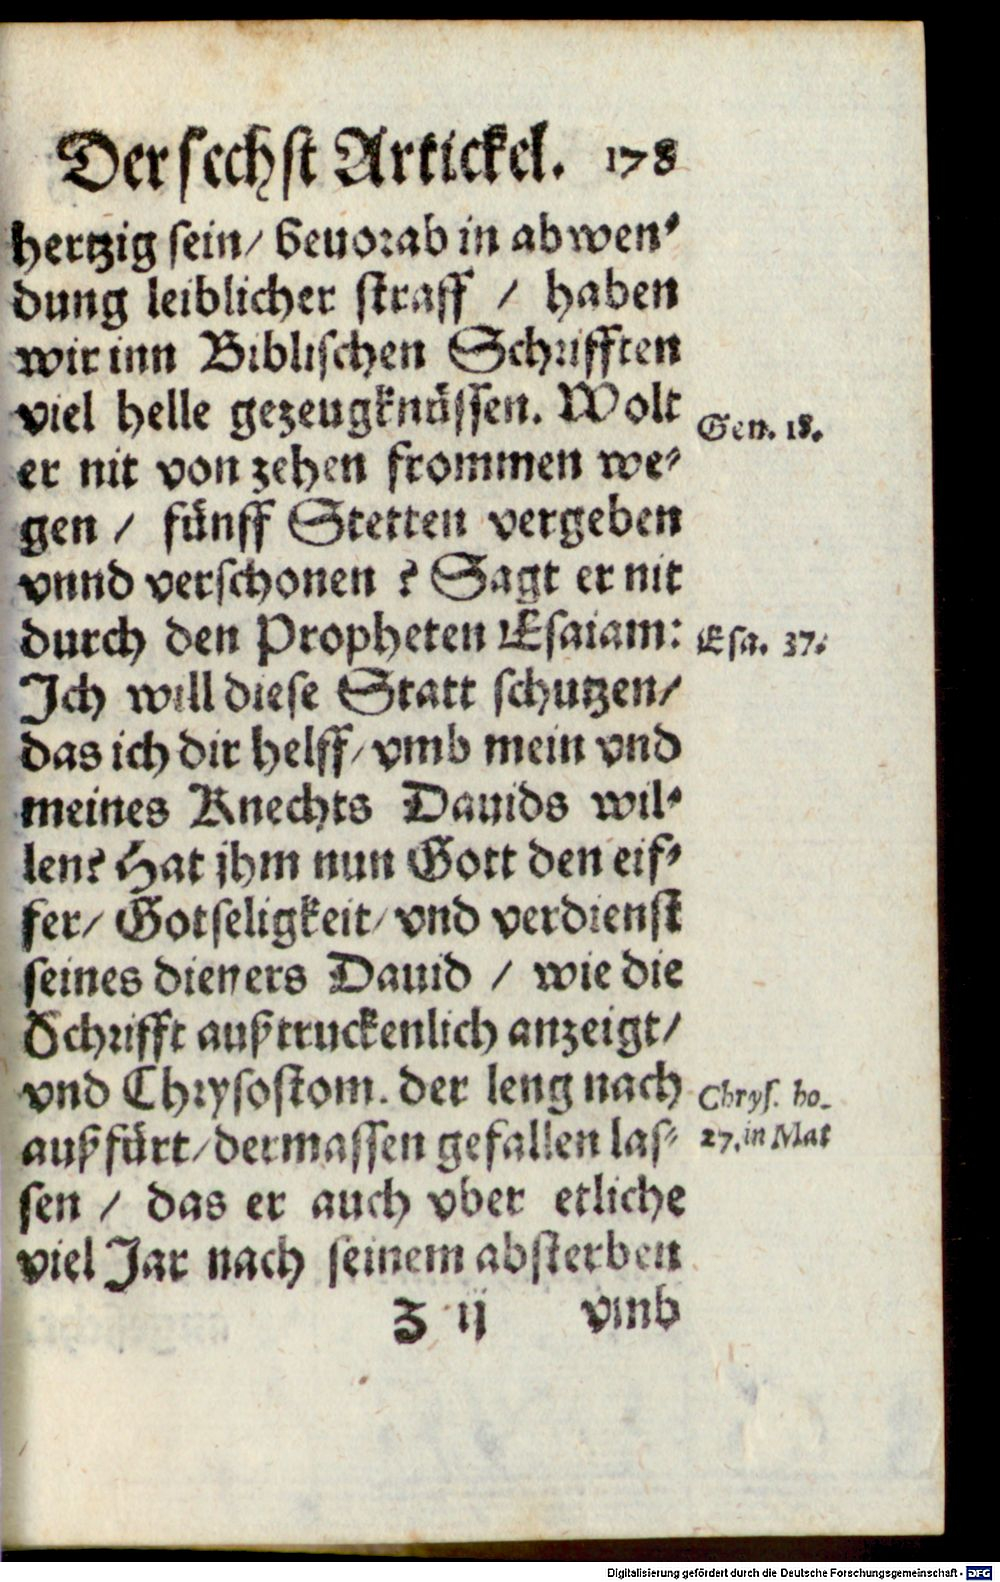 Der sechst Artickel. 178
hertzig sein/ beuorab in abwen-
dung leiblicher straff / haben
wir inn Biblischen Schrifften
viel helle gezeugknüssen. Wolt
Gen. 18.
er nit von zehen frommen we-
gen / fünff Stetten vergeben
vnnd verschonen ? Sagt er nit
durch den Propheten Esaiam:
Esa. 37.
Jch will diese Statt schutzen/
das ich dir helff/ vmb mein vnd
meines Knechts Dauids wil-
len? Hat jhm nun Gott den eif-
fer/ Gotseligkeit/ vnd verdienst
seines dieners Dauid / wie die
Schrifft außtruckenlich anzeigt/
vnd Chrysostom. der leng nach
Chrys. ho.
außfürt/ dermassen gefallen las-
27. in Mat
sen / das er auch vber etliche
viel Jar nach seinem absterben
Z ij vmb
Digitalisierung gefördert durch die Deutsche Forschungsgemeinschaft - DFG